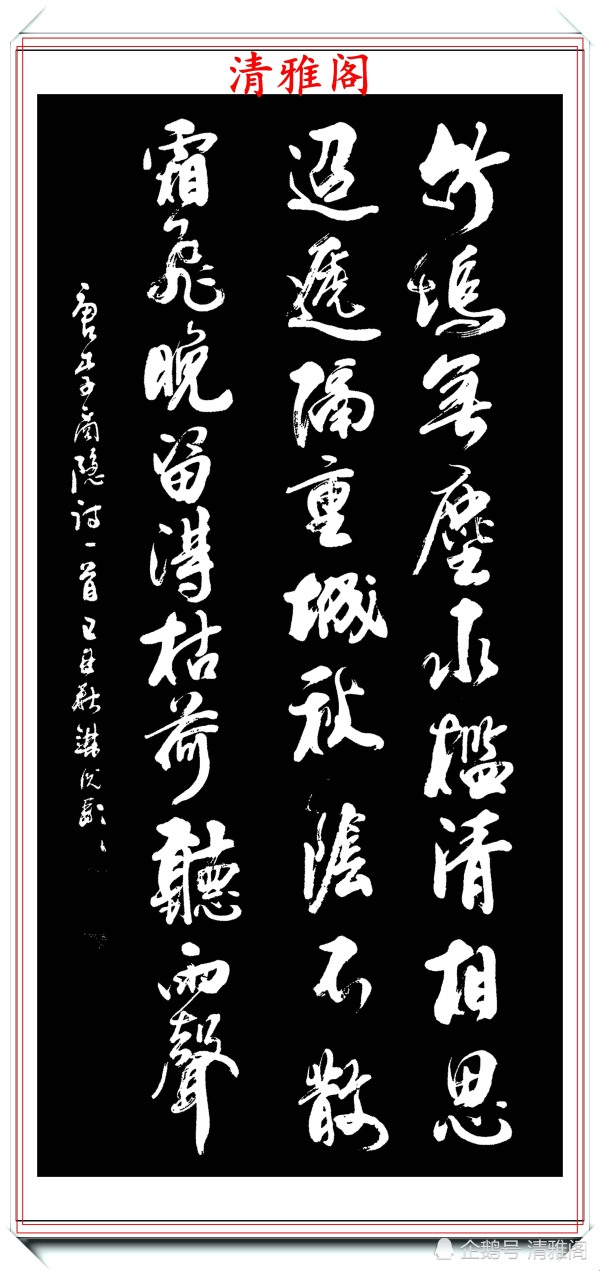 清雅阁
竹塢無塵水檻清相思
迢遞隔重城秋陰不散
霜飛晚留得枯荷聽雨聲
唐李商隱詩一首己丑秋
企鹅号 清雅阁